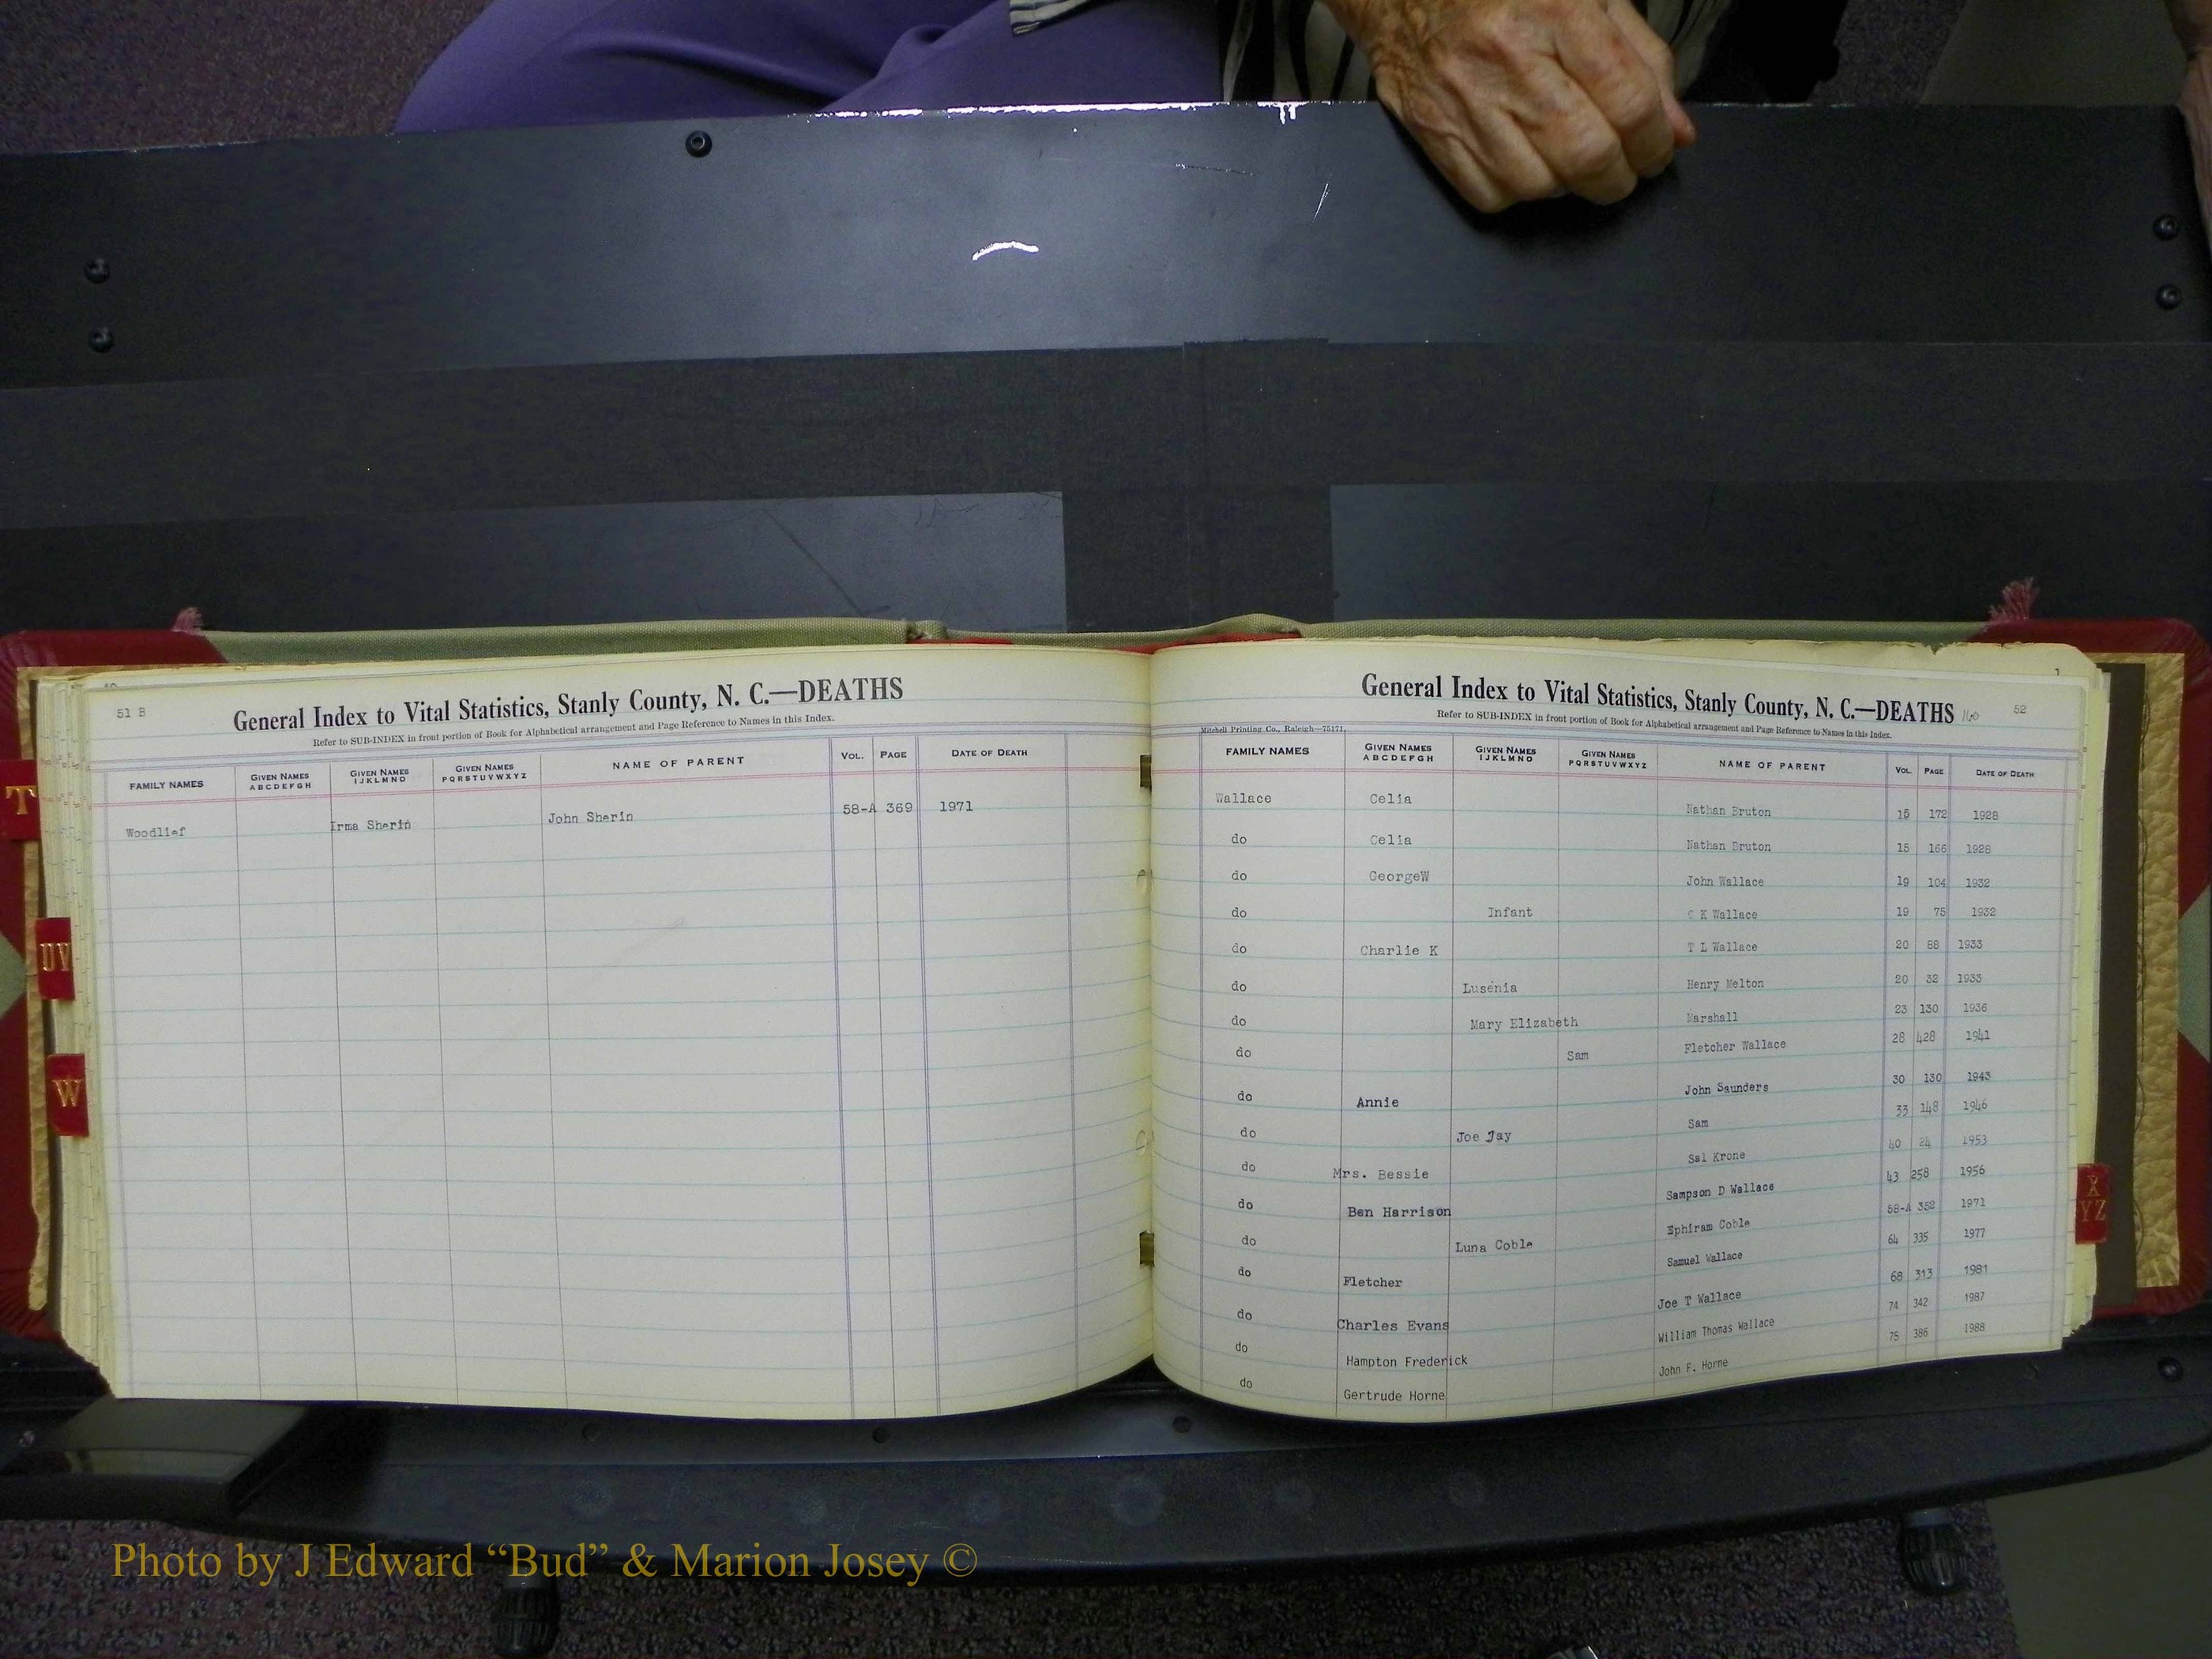 51 B
General Index to Vital Statistics, Stanly County, N. C.—DEATHS
Refer to SUB-INDEX in front portion of Book for Alphabetical arrangement and Page Reference to Names in this Index.
FAMILY NAMES GIVEN NAMES ABCDEFGH GIVEN NAMES IJKLMNO GIVEN NAMES PQRSTUVWXYZ NAME OF PARENT VOL. PAGE DATE OF DEATH
Woodlief Irma Sherin John Sherin 58-A 369 1971
T
UV
W
General Index to Vital Statistics, Stanly County, N. C.—DEATHS 160 52
Refer to SUB-INDEX in front portion of Book for Alphabetical arrangement and Page Reference to Names in this Index.
Mitchell Printing Co., Raleigh—75171.
FAMILY NAMES GIVEN NAMES ABCDEFGH GIVEN NAMES IJKLMNO GIVEN NAMES PQRSTUVWXYZ NAME OF PARENT VOL. PAGE DATE OF DEATH
Wallace Celia Nathan Bruton 15 172 1928
do Celia Nathan Bruton 15 166 1928
do GeorgeW John Wallace 19 104 1932
do Infant C K Wallace 19 75 1932
do Charlie K T L Wallace 20 88 1933
do Lusenia Henry Melton 20 32 1933
do Mary Elizabeth Marshall 23 130 1936
do Sam Fletcher Wallace 28 428 1941
do Annie John Saunders 30 130 1943
do Joe Jay Sam 33 148 1946
do Mrs. Bessie Sal Krone 40 24 1953
do Ben Harrison Sampson D Wallace 43 258 1956
do Luna Coble Ephiram Coble 58-A 352 1971
do Fletcher Samuel Wallace 64 335 1977
do Charles Evans Joe T Wallace 68 313 1981
do Hampton Frederick William Thomas Wallace 74 342 1987
do Gertrude Horne John F. Horne 75 386 1988
X
YZ
Photo by J Edward “Bud” & Marion Josey ©